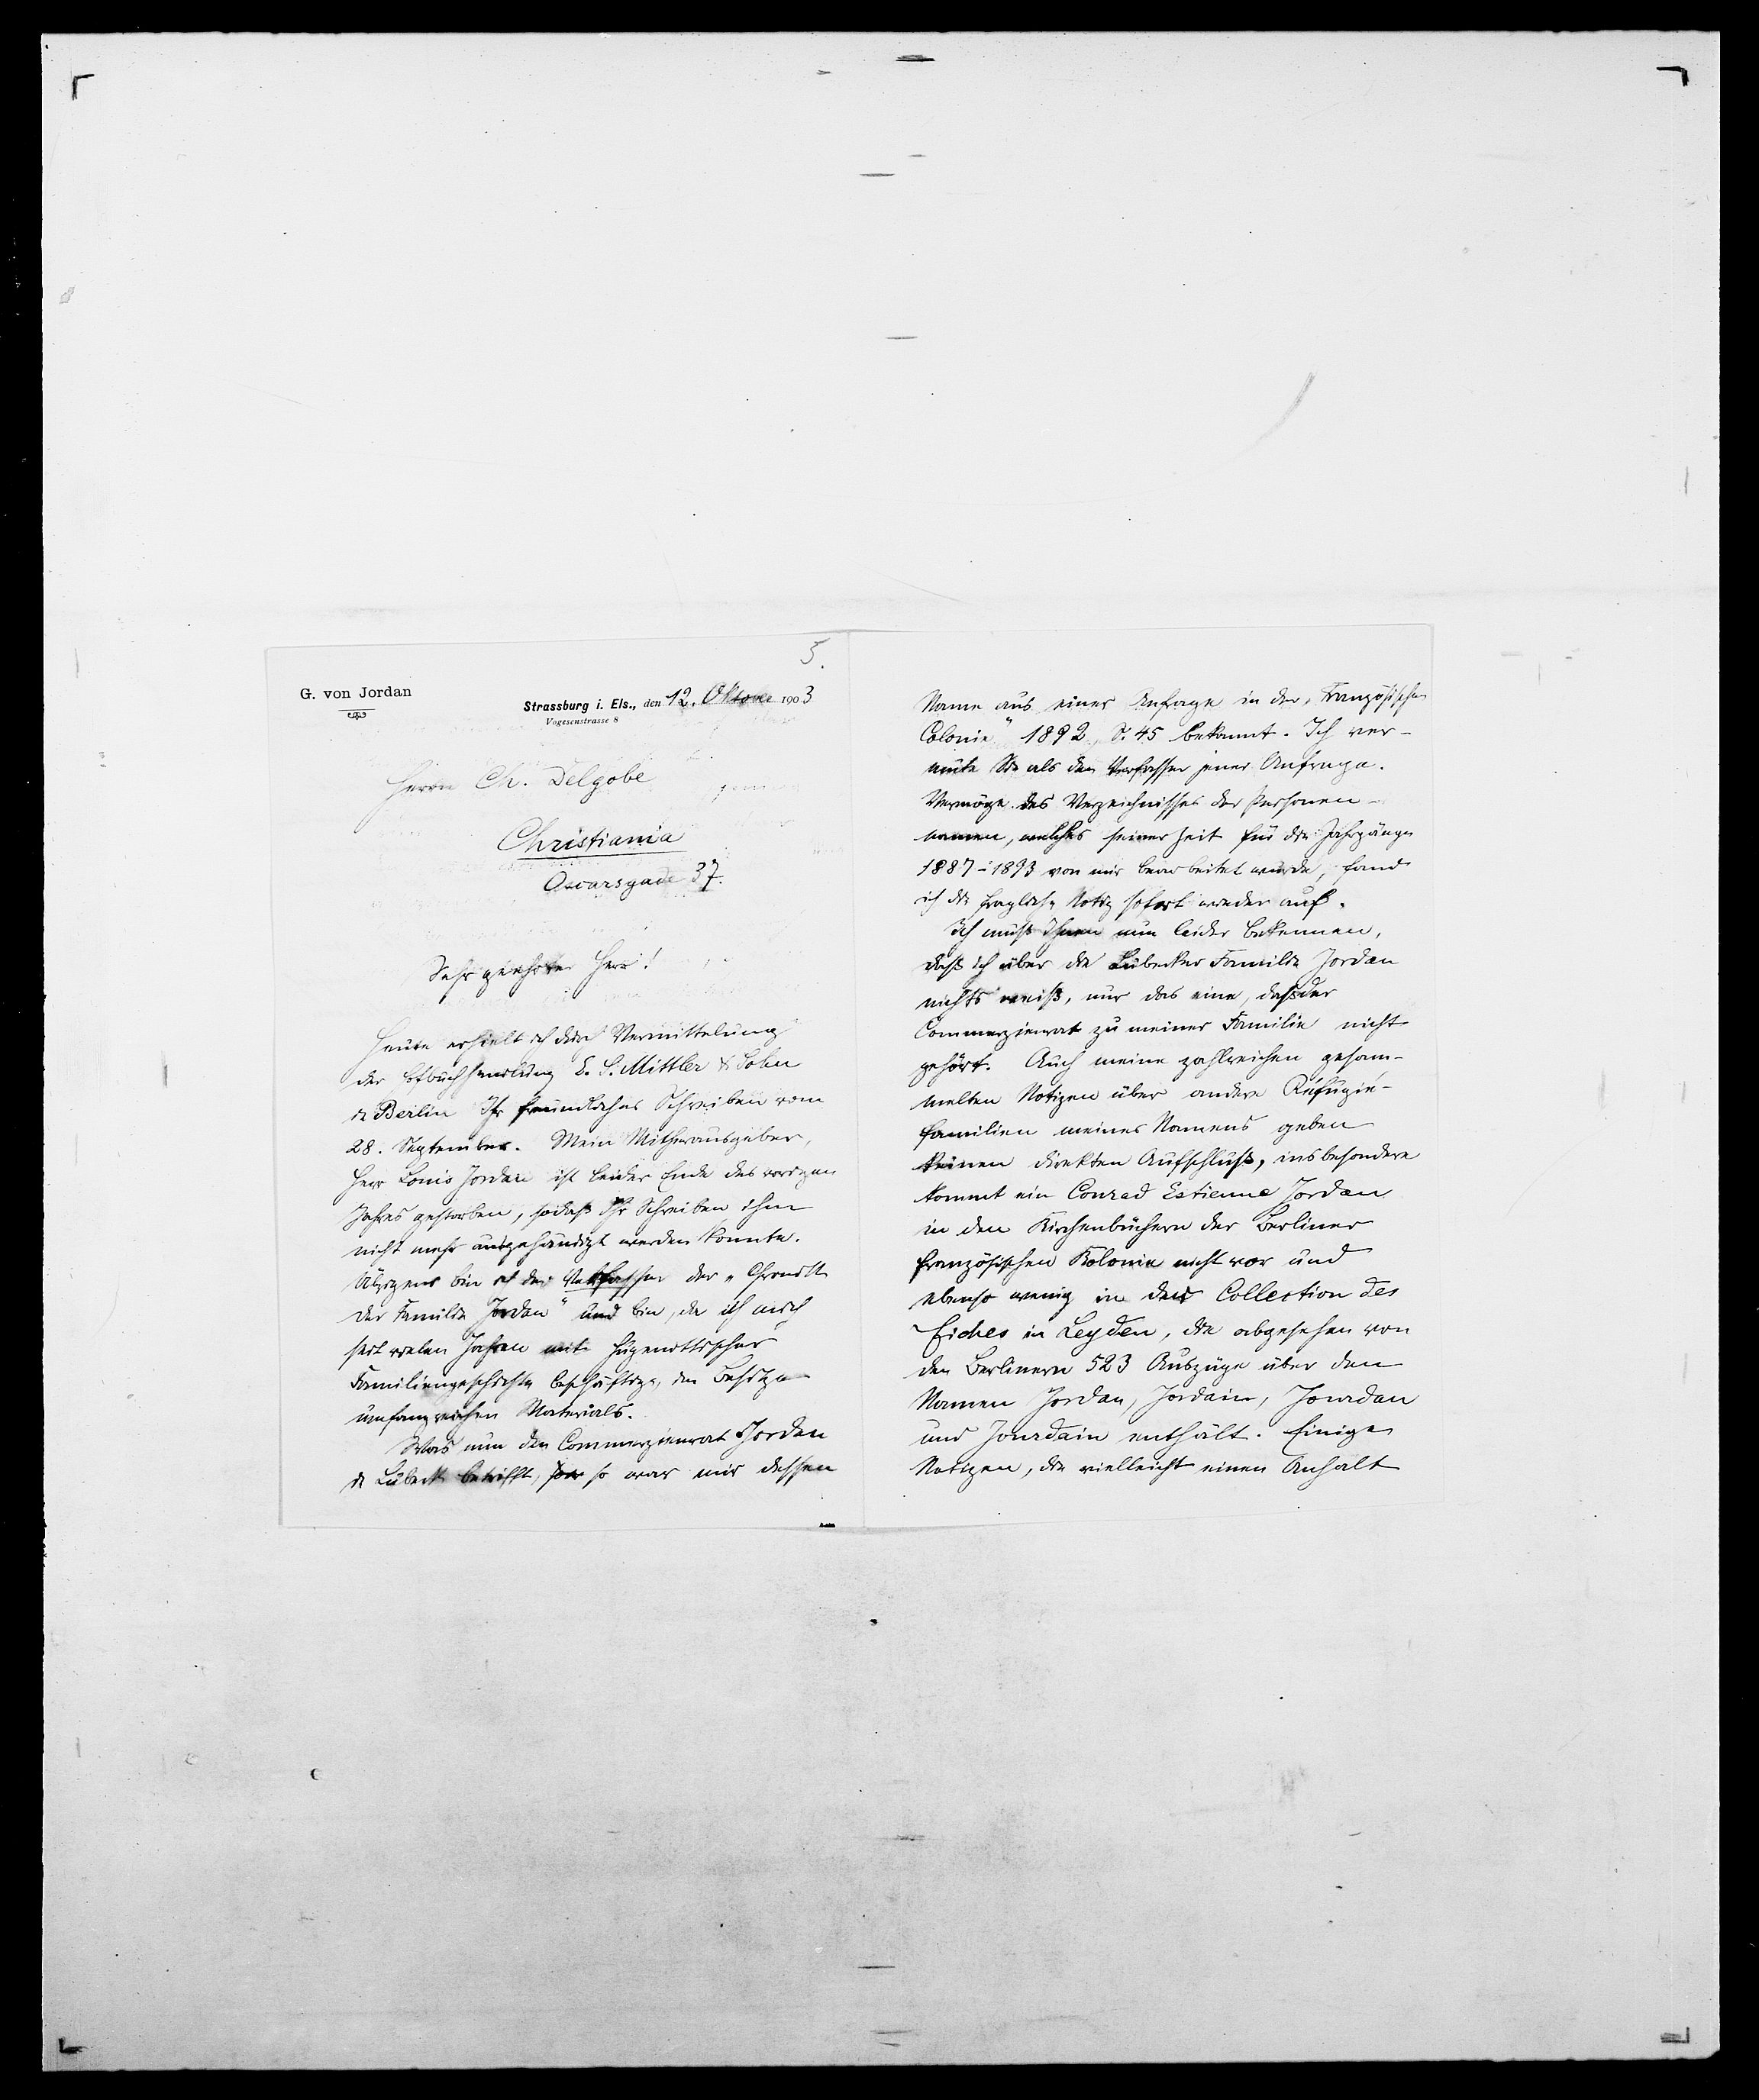 5.
G. von Jordan
Strassburg i. Els., den 12. Oktober 1903
Vogesenstrasse 8
Herrn Ch. Delgobe
Christiania
Oscarsgade 37.
Sehr geehrter Herr!
Heute erhielt ich durch Vermittelung
der Hofbuchhandlung E. S. Mittler & Sohn
in Berlin Ihr freundliches Schreiben vom
28. September. Mein Mitherausgeber,
Herr Louis Jordan ist leider Ende des vorigen
Jahres gestorben, sodaß Ihr Schreiben ihm
nicht mehr ausgehändigt werden konnte.
Übrigens bin ich der Verfasser der „Chronik
der Familie Jordan" und bin, da ich mich
seit vielen Jahren mit hugenottischer
Familiengeschichte beschäftige, im Besitze
umfangreichen Materials.
Was nun den Commerzienrat Jordan
in Lübeck betrifft, so war mir dessen
Name aus einer Anfrage in der „Französischen
Colonie" 1892, S. 45 bekannt. Ich ver-
mute Sie als den Verfasser jener Anfrage.
Vermöge des Verzeichnisses der Personen-
namen, welches seiner Zeit für die Jahrgänge
1887-1893 von mir bearbeitet wurde, fand
ich die fragliche Notiz sofort wieder auf.
Ich muß Ihnen nun leider bekennen,
daß ich über die Lübecker Familie Jordan
nichts weiß, nur das eine, daß der
Commerzienrat zu meiner Familie nicht
gehört. Auch meine zahlreichen gesam-
melten Notizen über andere Réfugié-
familien meines Namens geben
keinen direkten Aufschluß, insbesondere
kommt ein Conrad Estienne Jordan
in den Kirchenbüchern der Berliner
französischen Kolonie nicht vor und
ebenso wenig in der Collection des
fiches in Leyden, die abgesehen von
den Berlinern 523 Auszüge über den
Namen Jordan, Jordain, Jourdan
und Jourdain enthält. Einige
Notizen, die vielleicht einen Anhalt